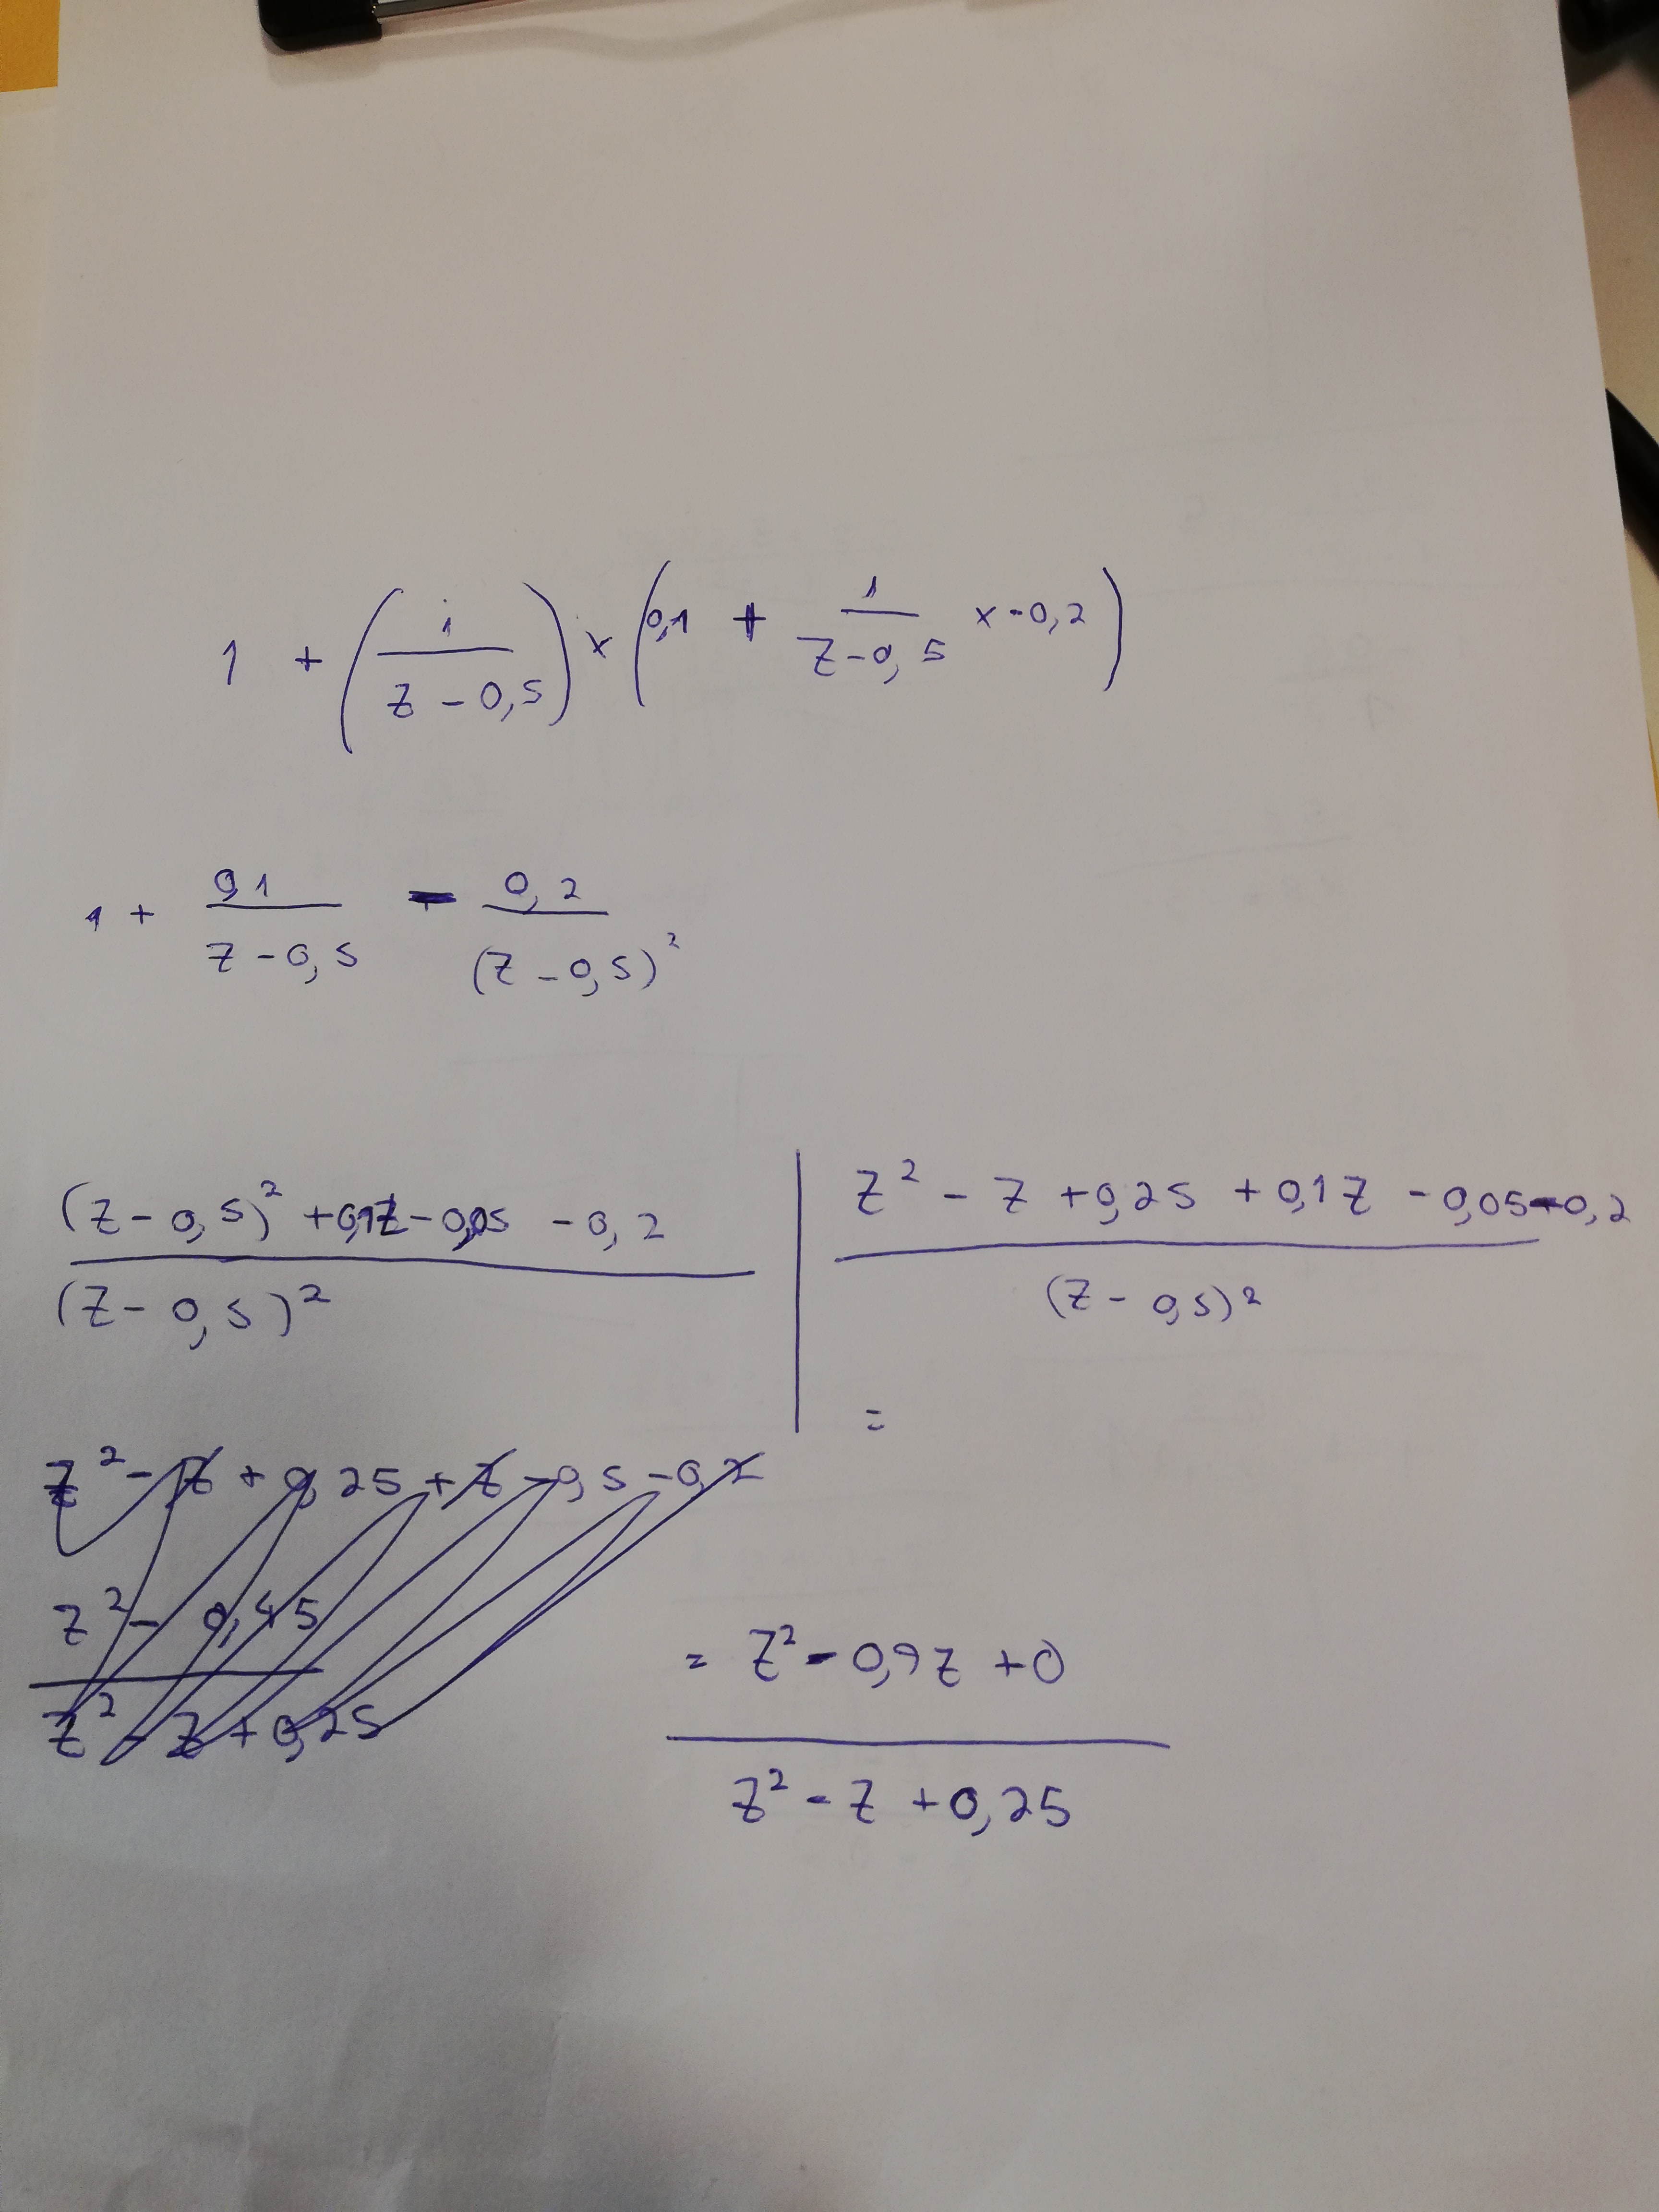 1 + (1/(z - 0,5)) x (0,1 + 1/(z - 0,5) x -0,2)
1 + 0,1/(z - 0,5) - 0,2/(z - 0,5)²
((z - 0,5)² + 0,1z - 0,05 - 0,2)/(z - 0,5)²
(z² - z + 0,25 + 0,1z - 0,05 - 0,2)/(z - 0,5)²
=
z² - z + 0,25 + z - 0,5 - 0,2
z² - 0,45
z² - z + 0,25
= (z² - 0,9z + 0)/(z² - z + 0,25)